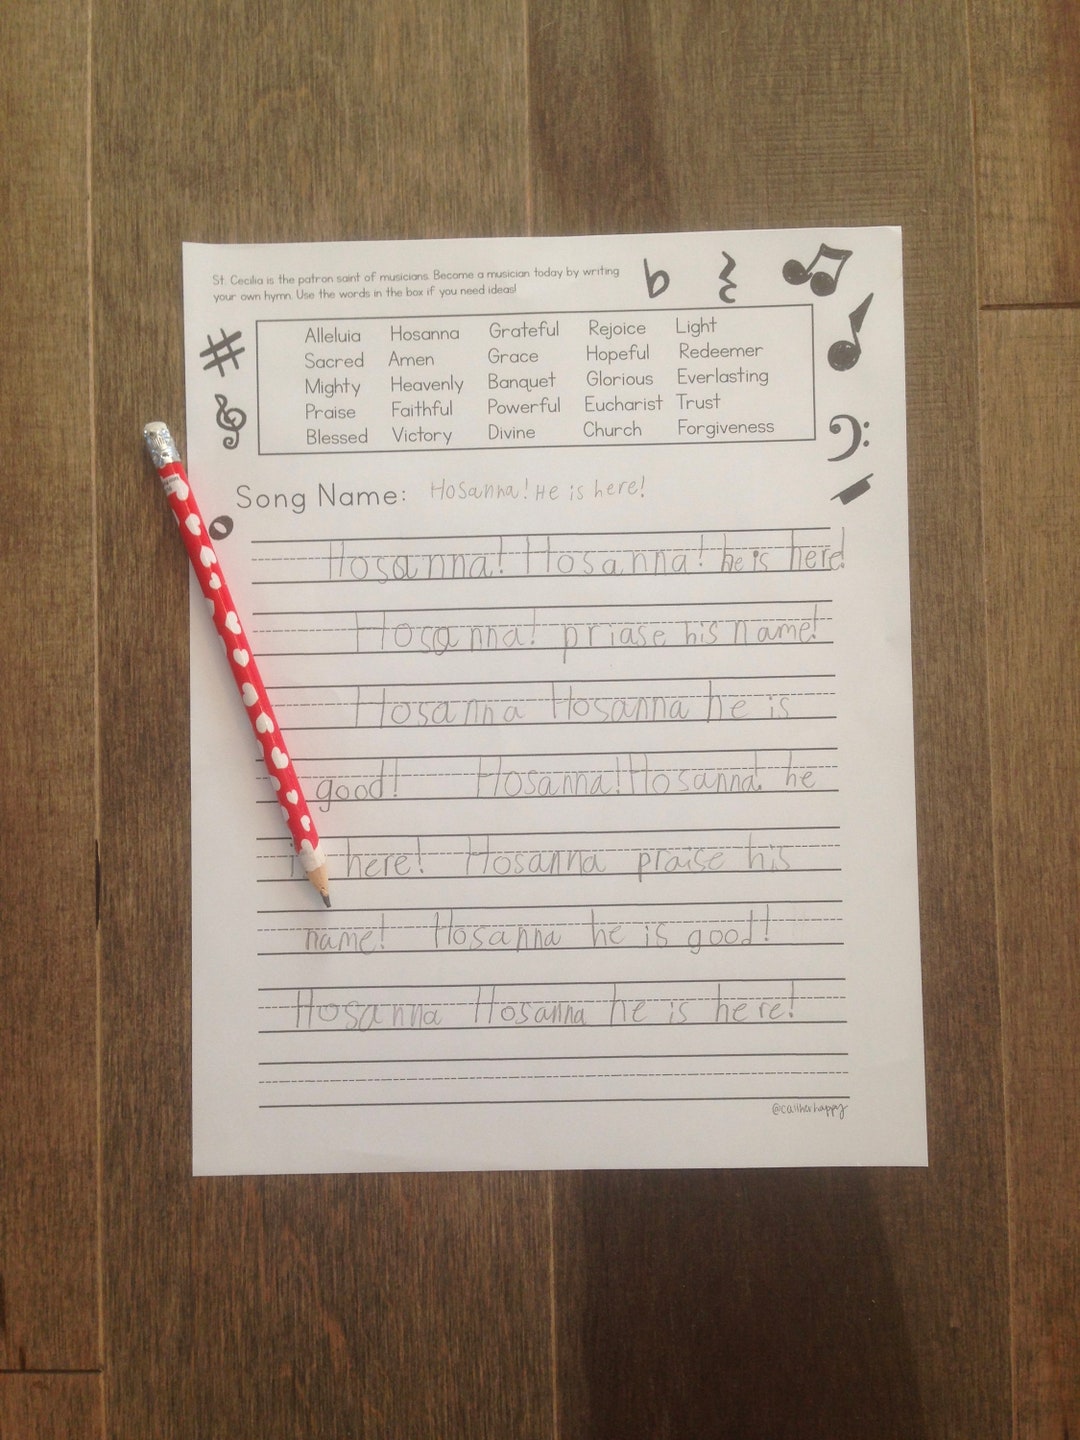 St. Cecilia is the patron saint of musicians. Become a musician today by writing
your own hymn. Use the words in the box if you need ideas!
Alleluia Hosanna Grateful Rejoice Light
Sacred Amen Grace Hopeful Redeemer
Mighty Heavenly Banquet Glorious Everlasting
Praise Faithful Powerful Eucharist Trust
Blessed Victory Divine Church Forgiveness
Song Name: Hosanna! He is here!
Hosanna! Hosanna! he is here!
Hosanna! priase his name!
Hosanna Hosanna he is
good! Hosanna! Hosanna! he
here! Hosanna praise his
name! Hosanna he is good!
Hosanna Hosanna he is here!
@callherhappy